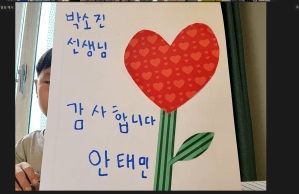 박소진
선생님
감사합니다
안태민